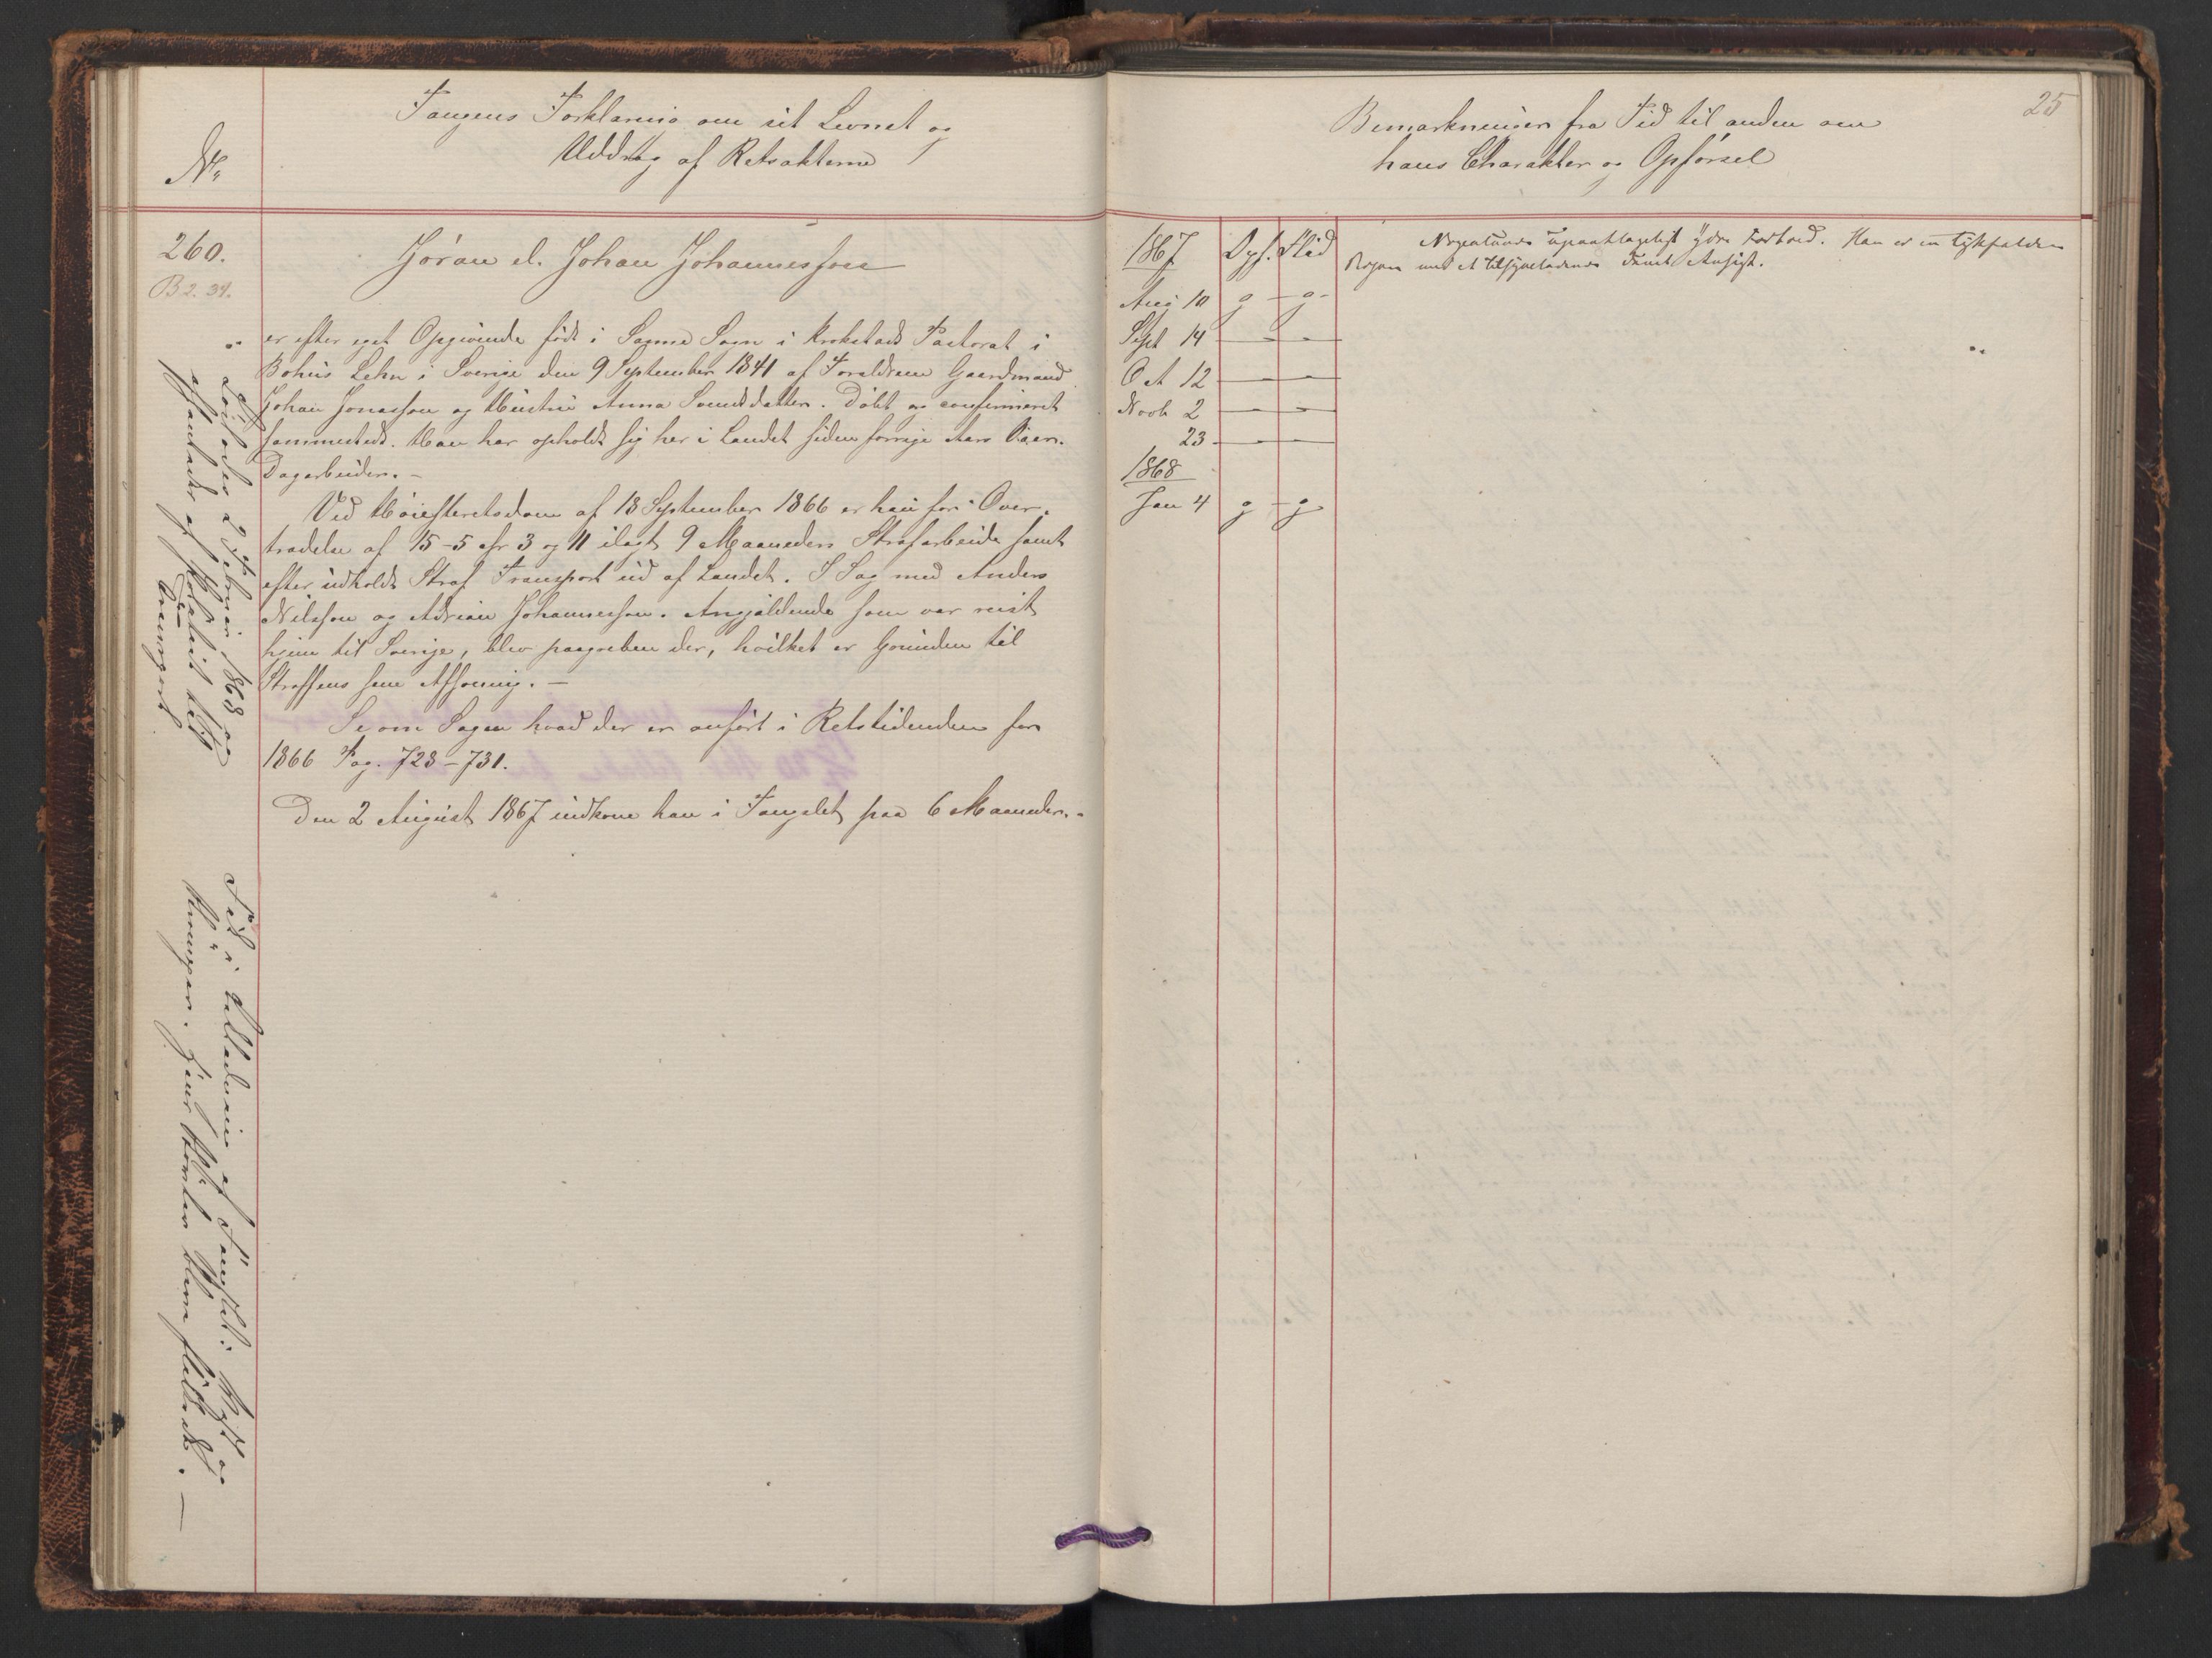 Fangens Forklaring om sit Levnet og
Uddrag af Retsakterne
No.
260.
B 2. 34.
Jöran el. Johan Johannesson
er efter eget Opgivende födt i Sanne Sogn i Krokstads Pastorat i
Bohus Lehn i Sverige den 9 September 1841 af Forældrene Gaardmand
Johan Jonasson og Hustru Anna Svendsdatter. Döbt og confirmeret
sammesteds. Han har opholdt sig her i Landet siden forrige Aars Vaar.
Dagarbeider. –
Ved Höiesteretsdom af 18 September 1866 er han for Over-
trædelse af 15-5 cfr 3 og 11 ilagt 9 Maaneders Strafarbeide samt
efter udholdt Straf Transport ud af Landet. I Sag med Anders
Nilsson og Adrian Johannesson. Angjældende som var reist
hjem til Sverige, blev paagreben der, hvilket er Grunden til
Straffens sene Afsoning. –
Se om Sagen hvad der er anfört i Retstidenden for
1866 Pag. 728-731.
Den 2 August 1867 indkom han i Fængslet paa 6 Maaneder. –
Löslades 2 Februar 1868 og
afhentedes af Politiet til
Transport
Feil i Udladning af Fængslet: Kost og
Klemmer. Hans Störker blev slettede. –
25
Bemærkninger fra Tid til anden om
hans Charakter og Opförsel
1867 Opf. Flid
Aug 10 g - g -
Sept 14 — —
Oct 12 — —
Novb 2 — —
23 — —
1868
Jan 4 g - g
Nogenlunde upaaklageligt ydre Forhold. Han er en tykfalden
Person med et tilsyneladende dumt Ansigt.